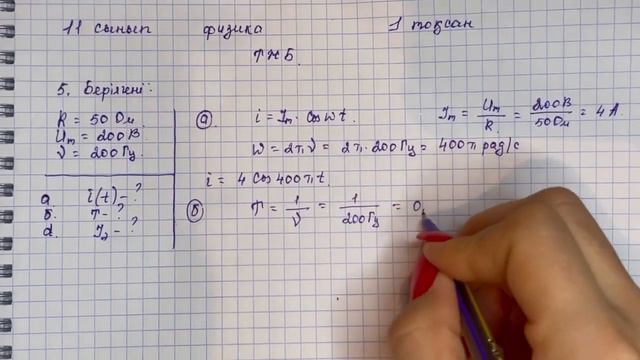 11 сынып физика 1 тоқсан
ТЖБ
5. Берілгені:
R = 50 Ом
Um = 200 В
ν = 200 Гц
a. i(t) - ?
б. T - ?
d. I₂ - ?
а) i = Im · cos ωt. Im = Um/R = 200В/50Ом = 4 А.
ω = 2πν = 2π·200Гц = 400π рад/с
i = 4 cos 400πt.
б) T = 1/ν = 1/200Гц = 0,